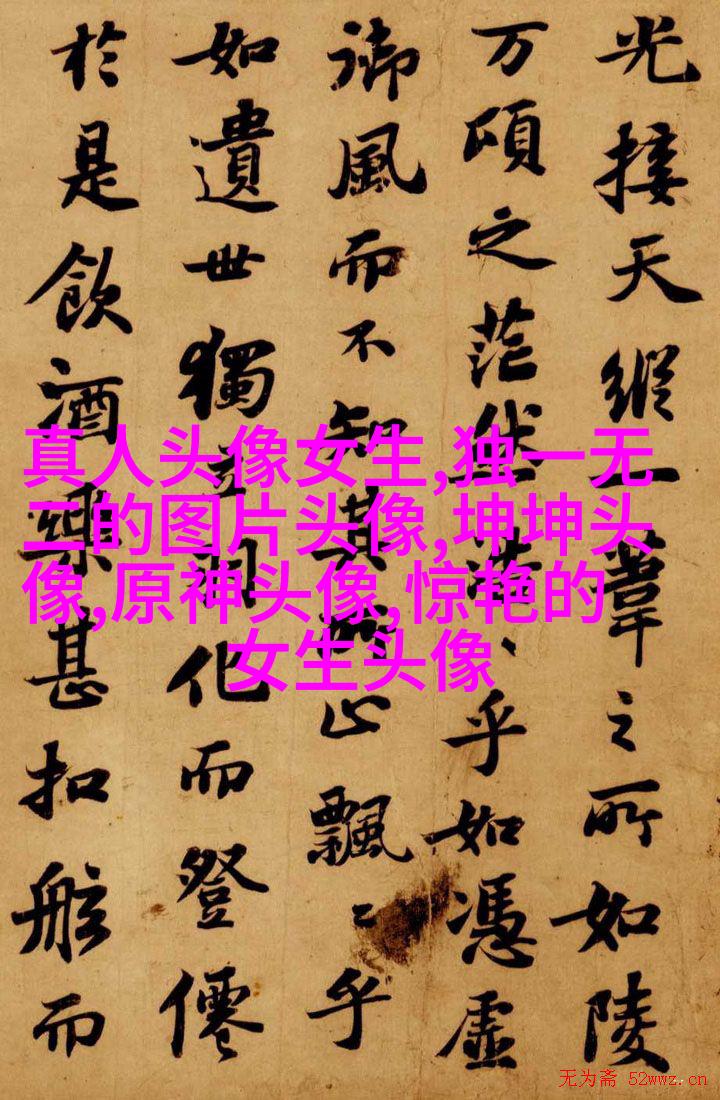 光接天縱一葦之所如陵
万頃之茫然浩〻乎如憑虛
御風而不知其所止飄〻乎
如遺世獨立羽化而登僊
於是飲酒樂甚扣舷而
真人头像女生,独一无
二的图片头像,坤坤头
像,原神头像,惊艳的
女生头像
无为斋 52wwz.cn